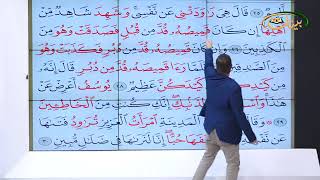 قَالَ هِيَ رَٰوَدَتْنِي عَن نَّفْسِي وَشَهِدَ شَاهِدٌ مِّنْ
أَهْلِهَا إِن كَانَ قَمِيصُهُۥ قُدَّ مِن قُبُلٍ فَصَدَقَتْ وَهُوَ مِنَ
ٱلْكَٰذِبِينَ ٢٦ وَإِن كَانَ قَمِيصُهُۥ قُدَّ مِن دُبُرٍ فَكَذَبَتْ وَهُوَ
مِنَ ٱلصَّٰدِقِينَ قَمِيصَهُۥ قُدَّ مِن دُبُرٍ قَالَ إِنَّهُۥ
مِن كَيْدِكُنَّ كَيْدَكُنَّ عَظِيمٌ ٢٨ يُوسُفُ أَعْرِضْ عَنْ
هَٰذَا لِذَنۢبِكِ إِنَّكِ كُنتِ مِنَ ٱلْخَاطِـِٔينَ
٢٩ ٱمْرَأَتُ ٱلْعَزِيزِ تُرَٰوِدُ فَتَىٰهَا
عَن نَّفْسِهِۦ شَغَفَهَا حُبًّا إِنَّا لَنَرَىٰهَا فِي ضَلَٰلٍ مُّبِينٍ ٣٠